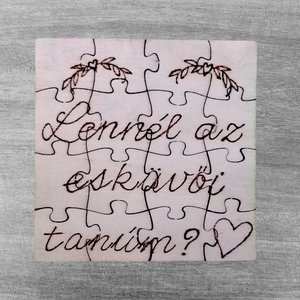 Lennél az
esküvői
tanúm?